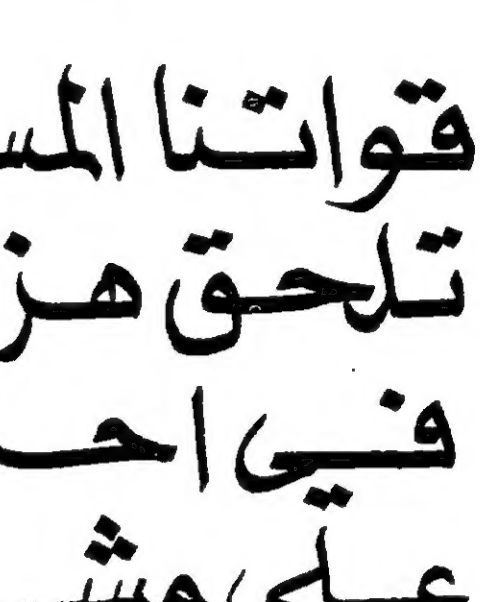 قواتنا المس
تلحق هز
في احـ
على مشـ